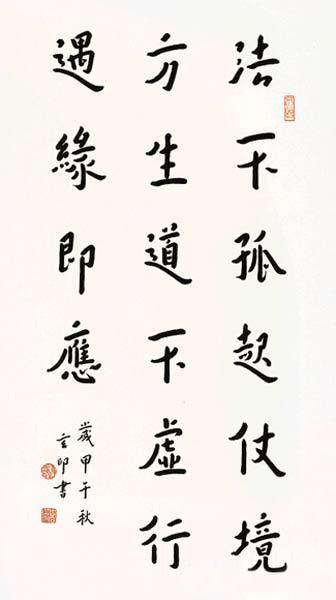 法不孤起仗境
方生道不虛行
遇緣即應
歲甲午秋
玄印書